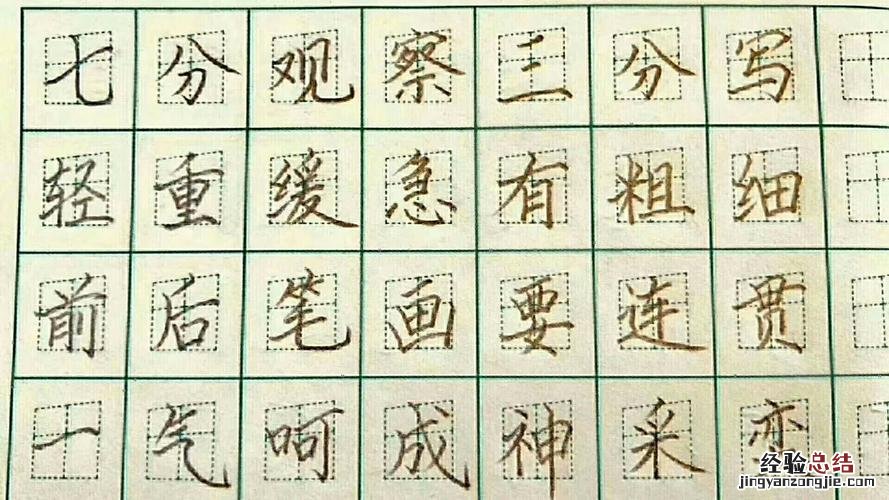 七分观察三分写
轻重缓急有粗细
前后笔画要连贯
一气呵成神采
经验总结
jingyanzongjie.com